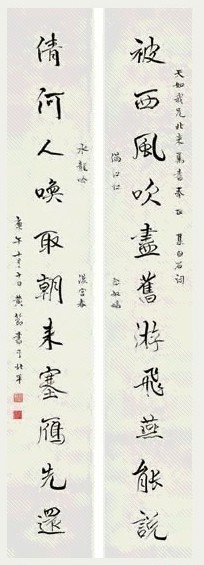 被西風吹盡舊游飛燕能說
倩何人喚取朝來塞雁先還
天如我兄北來 寫書奉正 集白石詞
滿江紅
念奴嬌
水龍吟
漢宮春
庚午十月十日 黃 書于北平